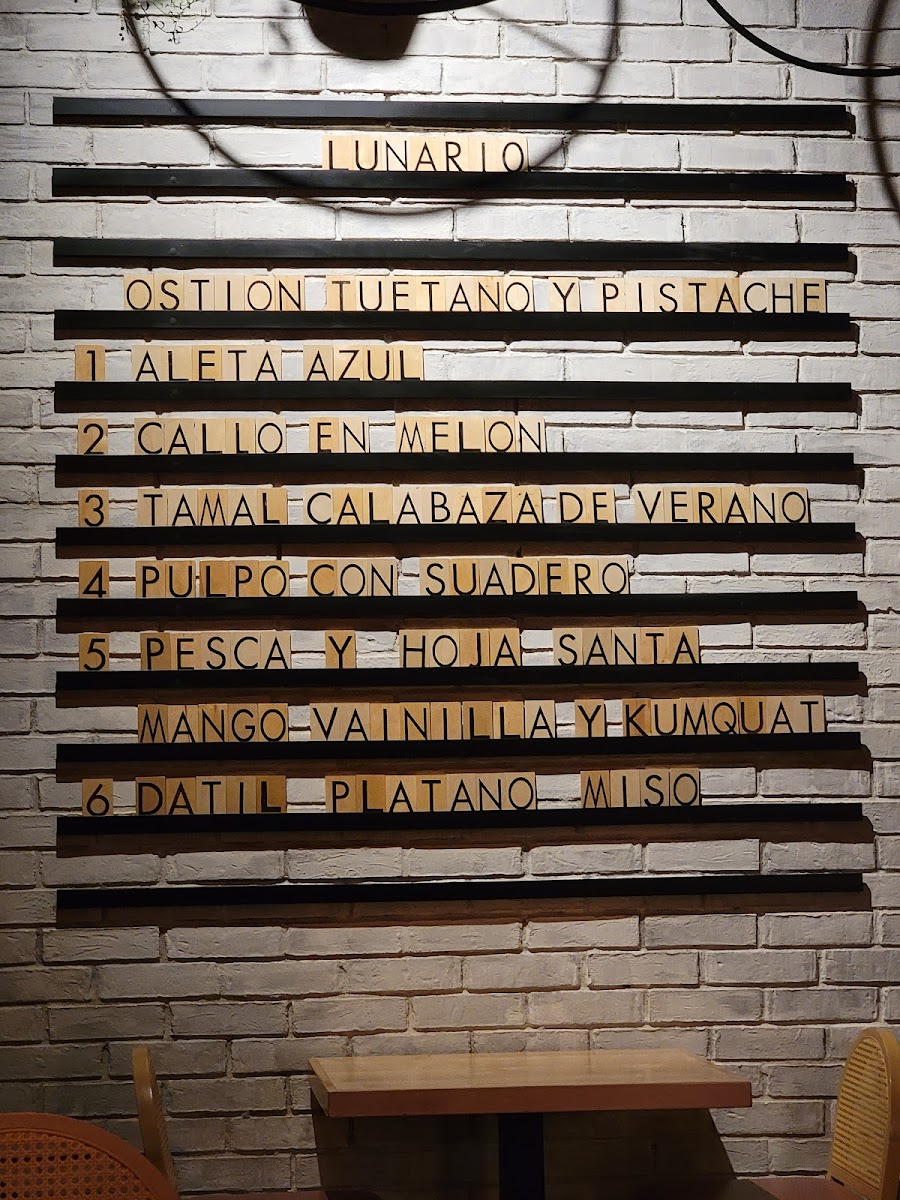 LUNARIO
OSTION TUETANO Y PISTACHE
1 ALETA AZUL
2 CALLO EN MELON
3 TAMAL CALABAZA DE VERANO
4 PULPO CON SUADERO
5 PESCA Y HOJA SANTA
MANGO VAINILLA Y KUMQUAT
6 DATIL PLATANO MISO